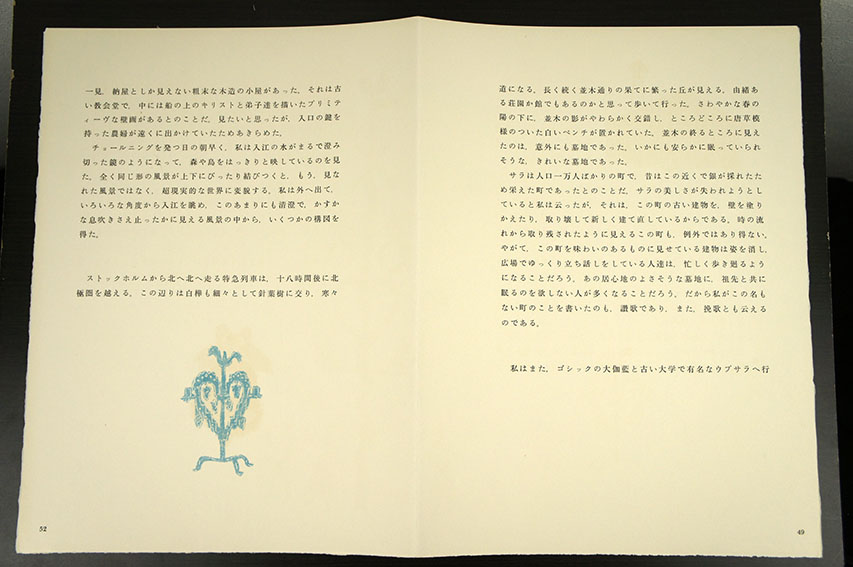 一見，納屋としか見えない粗末な木造の小屋があった。それは古
い教会堂で，中には船の上のキリストと弟子達を描いたプリミテ
ィーヴな壁画があるとのことだ。見たいと思ったが，入口の鍵を
持った農婦が遠くに出かけていたためあきらめた。
チェールニングを発つ日の朝早く，私は入江の水がまるで澄み
切った鏡のようになって，森や島をはっきりと映しているのを見
た。全く同じ形の風景が上下にぴったり結びつくと，もう，見な
れた風景ではなく，超現実的な世界に変貌する。私は外へ出て，
いろいろな角度から入江を眺め，このあまりにも清澄で，かすか
な息吹きさえ止ったかに見える風景の中から，いくつかの構図を
得た。
ストックホルムから北へ北へ走る特急列車は，十八時間後に北
極圏を越える。この辺りは白樺も細々として針葉樹に交り，寒々
52
道になる。長く続く並木通りの果てに繁った丘が見える。由緒あ
る荘園か館でもあるのかと思って歩いて行った。さわやかな春の
陽の下に，並木の影がやわらかく交錯し，ところどころに唐草模
様のついた白いベンチが置かれていた。並木の終るところに見え
たのは，意外にも墓地であった。いかにも安らかに眠っていられ
そうな，きれいな墓地であった。
サラは人口一万人ばかりの町で，昔はこの近くで銀が採れたた
め栄えた町であったとのことだ。サラの美しさが失われようとし
ていると私は云ったが，それは，この町の古い建物を，壁を塗り
かえたり，取り壊して新しく建て直しているからである。時の流
れから取り残されたように見えるこの町も，例外ではあり得ない。
やがて，この町を味わいのあるものに見せている建物は姿を消し，
広場でゆっくり立ち話しをしている人達は，忙しく歩き廻るよう
になることだろう。あの居心地のよさそうな墓地に，祖先と共に
眠るのを欲しない人が多くなることだろう。だから私がこの名も
ない町のことを書いたのも，讃歌であり，また，挽歌とも云える
のである。
私はまた，ゴシックの大伽藍と古い大学で有名なウプサラへ行
49